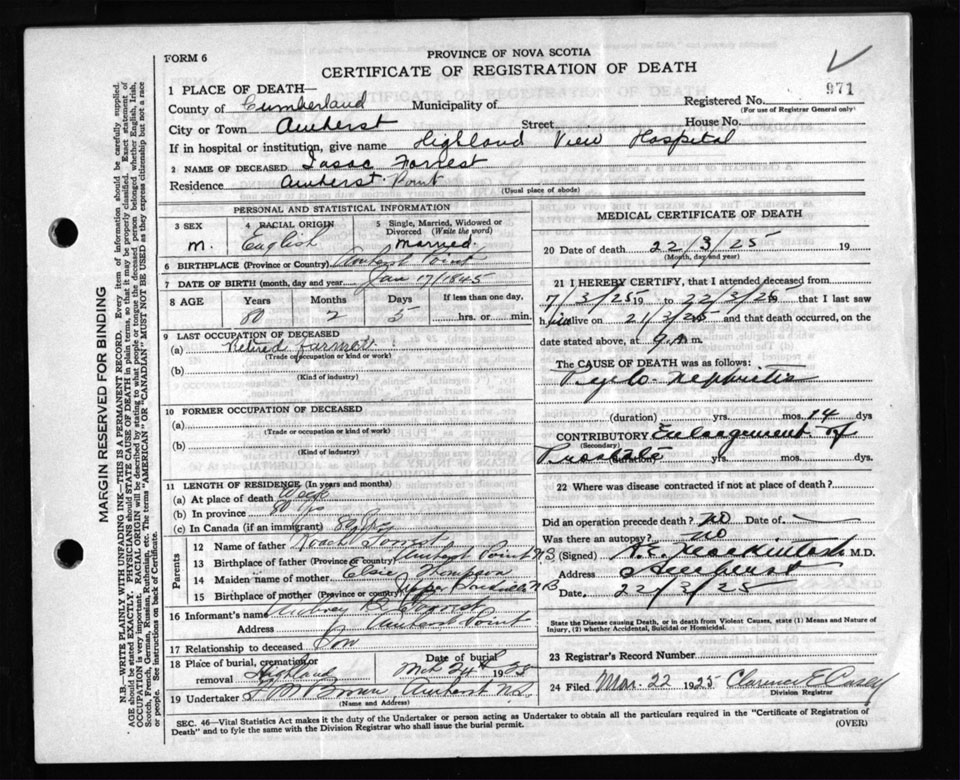 FORM 6
PROVINCE OF NOVA SCOTIA
CERTIFICATE OF REGISTRATION OF DEATH
971
1 PLACE OF DEATH—
County of Cumberland Municipality of
Registered No.
(For use of Registrar General only)
City or Town Amherst Street House No.
If in hospital or institution, give name Highland View Hospital
2 NAME OF DECEASED Isaac Forrest
Residence Amherst Point
(Usual place of abode)
PERSONAL AND STATISTICAL INFORMATION
3 SEX 4 RACIAL ORIGIN 5 Single, Married, Widowed or Divorced (Write the word)
m. English Married
6 BIRTHPLACE (Province or Country) Amherst Point
7 DATE OF BIRTH (month, day and year) Jan 17/1845
8 AGE Years Months Days If less than one day,
80 2 5 hrs. or min.
9 LAST OCCUPATION OF DECEASED
(a) Retired farmer
(Trade or occupation or kind or work)
(b)
(Kind of industry)
10 FORMER OCCUPATION OF DECEASED
(a)
(Trade or occupation or kind or work)
(b)
(Kind of industry)
11 LENGTH OF RESIDENCE (In years and months)
(a) At place of death Week
(b) In province 80 yrs
(c) In Canada (if an immigrant) 80 yrs
Parents
12 Name of father Roach Forrest
13 Birthplace of father (Province or country) Amherst Point N.S
14 Maiden name of mother Elsie Thompson
15 Birthplace of mother (Province or country) N B
16 Informant's name Aubrey B. Forrest
Address Amherst Point
17 Relationship to deceased Son
18 Place of burial, cremation or removal Highland
Date of burial Mch 24th 1925
19 Undertaker Brown Amherst N.S.
(Name and Address)
MEDICAL CERTIFICATE OF DEATH
20 Date of death 22/3/25 19
(Month, day and year)
21 I HEREBY CERTIFY, that I attended deceased from
7/3/25 19 to 22/3/25 19 that I last saw
him alive on 21/3/25 and that death occurred, on the
date stated above, at 9 A m.
The CAUSE OF DEATH was as follows:
Pyelo. Nephritis
(duration) yrs. mos. 14 dys
CONTRIBUTORY Enlargement of
(Secondary)
Prostate (duration) yrs. mos. dys
22 Where was disease contracted if not at place of death?
Did an operation precede death? no Date of
Was there an autopsy? no
(Signed) Mackintosh M.D.
Address Amherst
Date. 22/3/25
State the Disease causing Death, or in death from Violent Causes, state (1) Means and Nature of
Injury, (2) whether Accidental, Suicidal or Homicidal.
23 Registrar's Record Number
24 Filed Mar. 22 1925 Clarence E Casey
Division Registrar
SEC. 46—Vital Statistics Act makes it the duty of the Undertaker or person acting as Undertaker to obtain all the particulars required in the "Certificate of Registration of
Death" and to fyle the same with the Division Registrar who shall issue the burial permit.
(OVER)
MARGIN RESERVED FOR BINDING
N.B.—WRITE PLAINLY WITH UNFADING INK—THIS IS A PERMANENT RECORD. Every item of information should be carefully supplied.
AGE should be stated EXACTLY. PHYSICIANS should STATE CAUSE OF DEATH in plain terms, so that it may be properly classified. Exact statement of
OCCUPATION is very important. RACIAL ORIGIN will be described by stating to what people or tongue the deceased person belonged whether English, Irish,
Scotch, French, German, Russian, Ruthenian, etc. The terms "AMERICAN" OR "CANADIAN" MUST NOT BE USED as they express citizenship but not a race
or people. See instructions on back of Certificate.